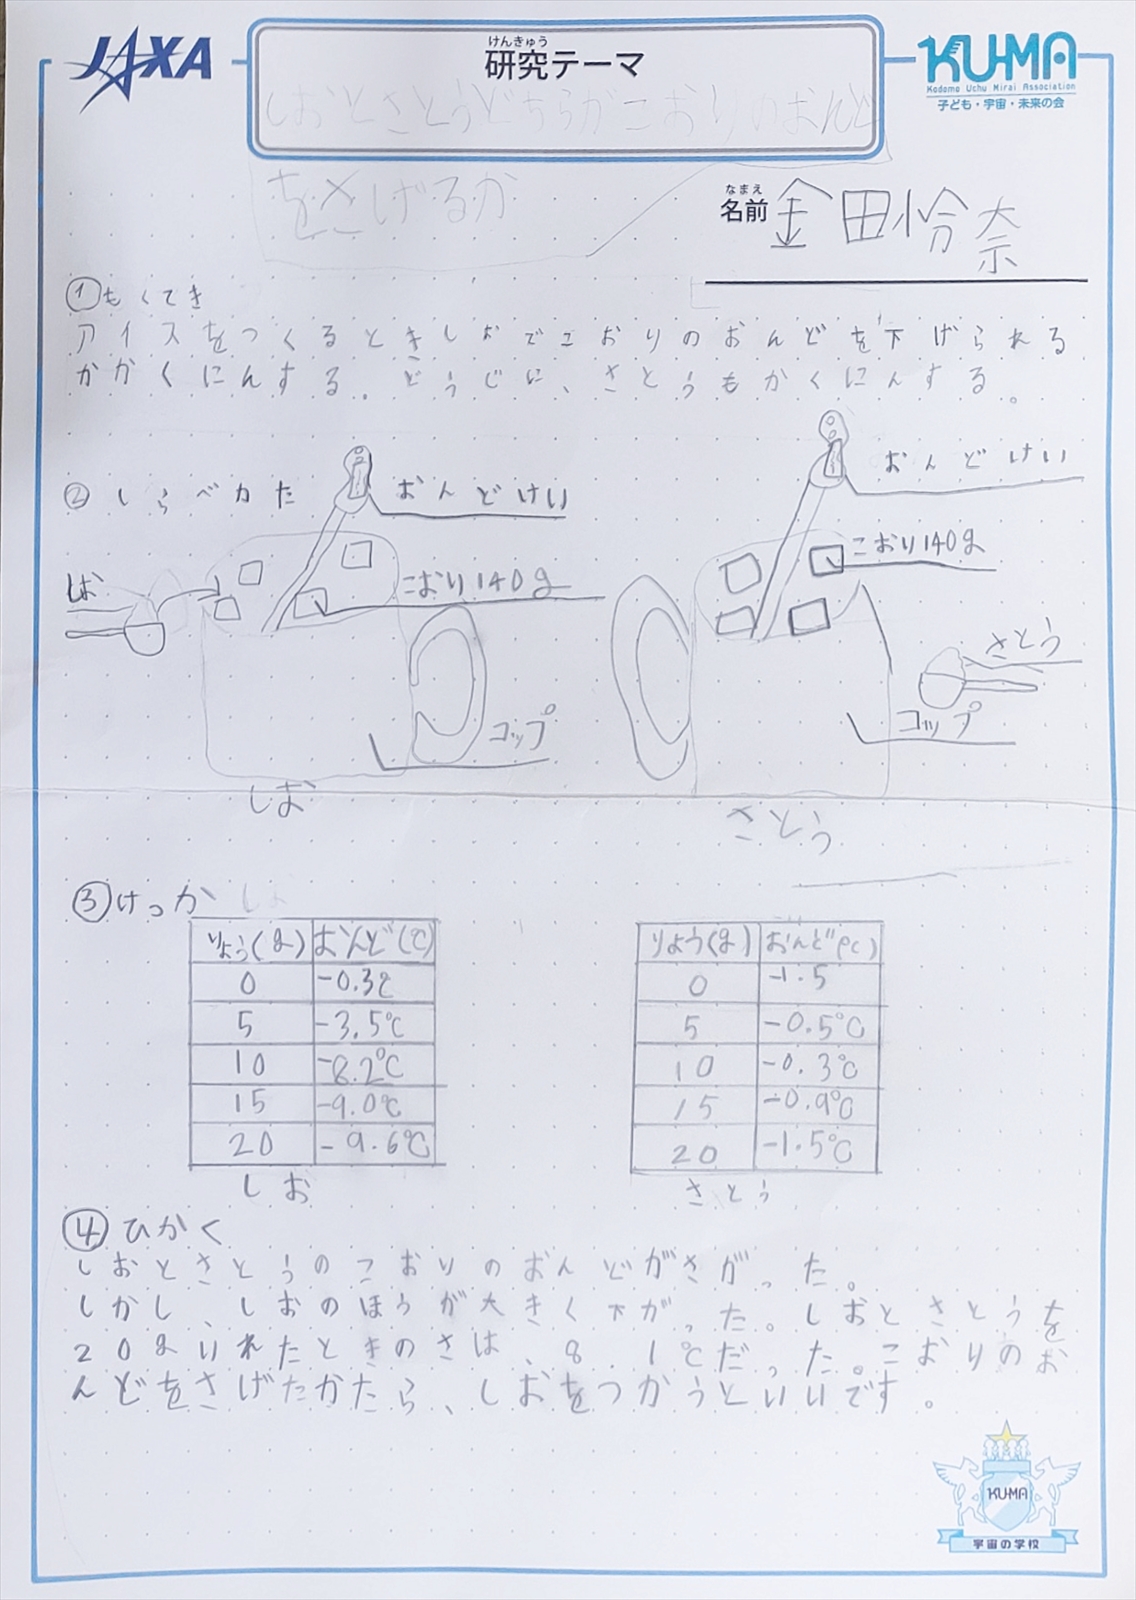 JAXA
けんきゅう
研究テーマ
KU-MA
Kodomo Uchu Mirai Association
子ども・宇宙・未来の会
しおとさとうどちらがこおりのおんど
をさげるか
なまえ
名前 金田怜奈
①もくてき
アイスをつくるときしおでこおりのおんどを下げられる
かかくにんする。どうじに、さとうもかくにんする。
②しらべかた
おんどけい
こおり140g
しお
コップ
しお
おんどけい
こおり140g
さとう
コップ
さとう
③けっか
りょう(g) おんど(℃)
0 -0.3℃
5 -3.5℃
10 -8.2℃
15 -9.0℃
20 -9.6℃
しお
りょう(g) おんど(℃)
0 -1.5
5 -0.5℃
10 -0.3℃
15 -0.9℃
20 -1.5℃
さとう
④ひかく
しおとさとうのこおりのおんどがさがった。
しかし、しおのほうが大きく下がった。しおとさとうを
20gいれたときのさは、8.1℃だった。こおりのお
んどをさげたかたら、しおをつかうといいです。
KU-MA
宇宙の学校